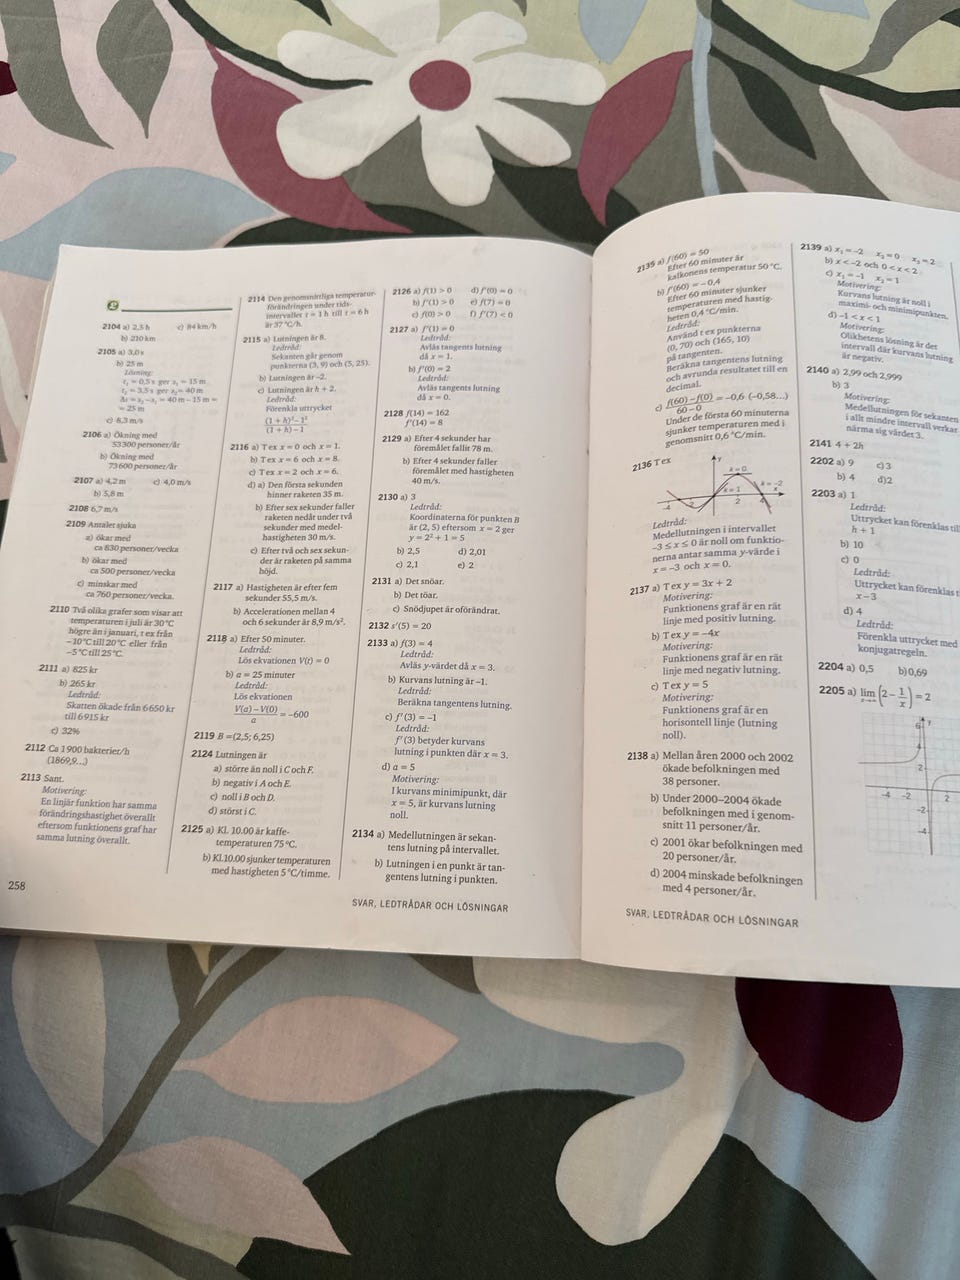 2104 a) 2,5 h c) 84 km/h
b) 210 km
2105 a) 3,0 s
b) 25 m
Lösning:
t₁ = 0,5 s ger s₁ = 15 m
t₂ = 3,5 s ger s₂ = 40 m
Δs = s₂ – s₁ = 40 m – 15 m =
= 25 m
c) 8,3 m/s
2106 a) Ökning med
53300 personer/år
b) Ökning med
73600 personer/år
2107 a) 4,2 m c) 4,0 m/s
b) 5,8 m
2108 6,7 m/s
2109 Antalet sjuka
a) ökar med
ca 830 personer/vecka
b) ökar med
ca 500 personer/vecka
c) minskar med
ca 760 personer/vecka.
2110 Två olika grafer som visar att
temperaturen i juli är 30°C
högre än i januari, t ex från
–10°C till 20°C eller från
–5°C till 25°C.
2111 a) 825 kr
b) 265 kr
Ledtråd:
Skatten ökade från 6 650 kr
till 6 915 kr
c) 32%
2112 Ca 1 900 bakterier/h
(1869,9...)
2113 Sant.
Motivering:
En linjär funktion har samma
förändringshastighet överallt
eftersom funktionens graf har
samma lutning överallt.
258
2114 Den genomsnittliga temperatur-
förändringen under tids-
intervallet t = 1 h till t = 6 h
är 37 °C/h.
2115 a) Lutningen är 8.
Ledtråd:
Sekanten går genom
punkterna (3, 9) och (5, 25).
b) Lutningen är –2.
c) Lutningen är h + 2.
Ledtråd:
Förenkla uttrycket
(1 + h)² – 1²
(1 + h) – 1
2116 a) T ex x = 0 och x = 1.
b) T ex x = 6 och x = 8.
c) T ex x = 2 och x = 6.
d) a) Den första sekunden
hinner raketen 35 m.
b) Efter sex sekunder faller
raketen nedåt under två
sekunder med medel-
hastigheten 30 m/s.
c) Efter två och sex sekun-
der är raketen på samma
höjd.
2117 a) Hastigheten är efter fem
sekunder 55,5 m/s.
b) Accelerationen mellan 4
och 6 sekunder är 8,9 m/s².
2118 a) Efter 50 minuter.
Ledtråd:
Lös ekvationen V(t) = 0
b) a = 25 minuter
Ledtråd:
Lös ekvationen
V(a) – V(0)
a = –600
2119 B = (2,5; 6,25)
2124 Lutningen är
a) större än noll i C och F.
b) negativ i A och E.
c) noll i B och D.
d) störst i C.
2125 a) Kl. 10.00 är kaffe-
temperaturen 75 °C.
b) Kl.10.00 sjunker temperaturen
med hastigheten 5 °C/timme.
2126 a) f(1) > 0 d) f'(0) = 0
b) f'(1) > 0 e) f(7) = 0
c) f(0) > 0 f) f'(7) < 0
2127 a) f'(1) = 0
Ledtråd:
Avläs tangents lutning
då x = 1.
b) f'(0) = 2
Ledtråd:
Avläs tangents lutning
då x = 0.
2128 f(14) = 162
f'(14) = 8
2129 a) Efter 4 sekunder har
föremålet fallit 78 m.
b) Efter 4 sekunder faller
föremålet med hastigheten
40 m/s.
2130 a) 3
Ledtråd:
Koordinaterna för punkten B
är (2, 5) eftersom x = 2 ger
y = 2² + 1 = 5
b) 2,5 d) 2,01
c) 2,1 e) 2
2131 a) Det snöar.
b) Det töar.
c) Snödjupet är oförändrat.
2132 s'(5) = 20
2133 a) f(3) = 4
Ledtråd:
Avläs y-värdet då x = 3.
b) Kurvans lutning är –1.
Ledtråd:
Beräkna tangentens lutning.
c) f'(3) = –1
Ledtråd:
f'(3) betyder kurvans
lutning i punkten där x = 3.
d) a = 5
Motivering:
I kurvans minimipunkt, där
x = 5, är kurvans lutning
noll.
2134 a) Medellutningen är sekan-
tens lutning på intervallet.
b) Lutningen i en punkt är tan-
gentens lutning i punkten.
SVAR, LEDTRÅDAR OCH LÖSNINGAR
2135 a) f(60) = 50
Efter 60 minuter är
kalkonens temperatur 50 °C.
b) f'(60) = –0,4
Efter 60 minuter sjunker
temperaturen med hastig-
heten 0,4 °C/min.
Ledtråd:
Använd t ex punkterna
(0, 70) och (165, 10)
på tangenten.
Beräkna tangentens lutning
och avrunda resultatet till en
decimal.
c) f(60) – f(0)
60 – 0 = –0,6 (–0,58...)
Under de första 60 minuterna
sjunker temperaturen med i
genomsnitt 0,6 °C/min.
2136 T ex
y
k = 0
k = 1
k = –2
–4 2 4 x
Ledtråd:
Medellutningen i intervallet
–3 ≤ x ≤ 0 är noll om funktio-
nerna antar samma y-värde i
x = –3 och x = 0.
2137 a) T ex y = 3x + 2
Motivering:
Funktionens graf är en rät
linje med positiv lutning.
b) T ex y = –4x
Motivering:
Funktionens graf är en rät
linje med negativ lutning.
c) T ex y = 5
Motivering:
Funktionens graf är en
horisontell linje (lutning
noll).
2138 a) Mellan åren 2000 och 2002
ökade befolkningen med
38 personer.
b) Under 2000–2004 ökade
befolkningen med i genom-
snitt 11 personer/år.
c) 2001 ökar befolkningen med
20 personer/år.
d) 2004 minskade befolkningen
med 4 personer/år.
SVAR, LEDTRÅDAR OCH LÖSNINGAR
2139 a) x₁ = –2 x₂ = 0 x₃ = 2
b) x < –2 och 0 < x < 2
c) x₁ = –1 x₂ = 1
Motivering:
Kurvans lutning är noll i
maximi- och minimipunkten.
d) –1 < x < 1
Motivering:
Olikhetens lösning är det
intervall där kurvans lutning
är negativ.
2140 a) 2,99 och 2,999
b) 3
Motivering:
Medellutningen för sekanten
i allt mindre intervall verkar
närma sig värdet 3.
2141 4 + 2h
2202 a) 9 c) 3
b) 4 d) 2
2203 a) 1
Ledtråd:
Uttrycket kan förenklas til
h + 1
b) 10
c) 0
Ledtråd:
Uttrycket kan förenklas t
x – 3
d) 4
Ledtråd:
Förenkla uttrycket med
konjugatregeln.
2204 a) 0,5 b) 0,69
2205 a) lim (2 – 1/x) = 2
y
6
2
–4 –2
–2
–4